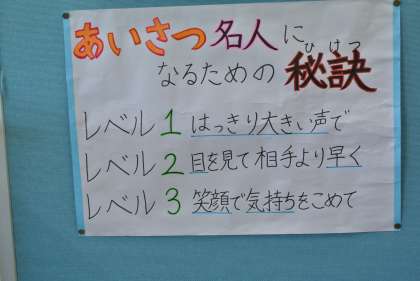 あいさつ名人に
なるための秘訣
ひけつ
レベル1 はっきり大きい声で
レベル2 目を見て相手より早く
レベル3 笑顔で気持ちをこめて